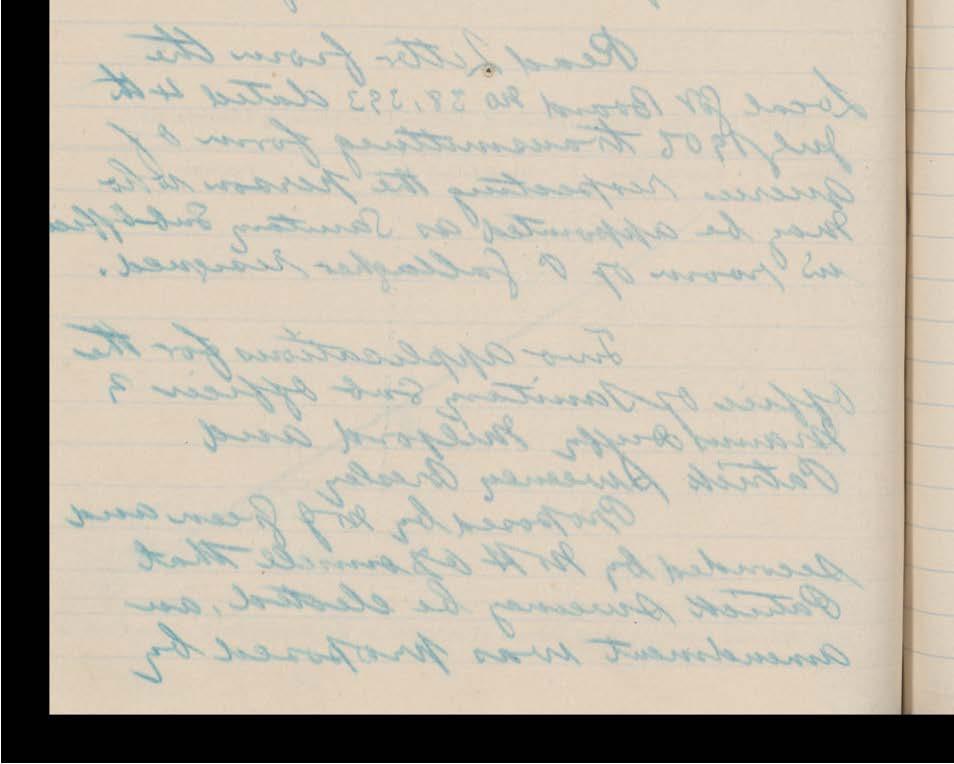 Read Letter from the
Local Gov Board No 38,393 dated 4th
July 1906 transmitting form of
queries respecting the person who
May be appointed as Sanitary Suboffice
in room of P Gallagher resigned.
Two applications for the
office of Sanitary Sub Officer
Duffy Milford and
Patrick Sweeney
Proposed by Green and
seconded by that
Patrick Sweeney be elected, an
amendment was proposed by